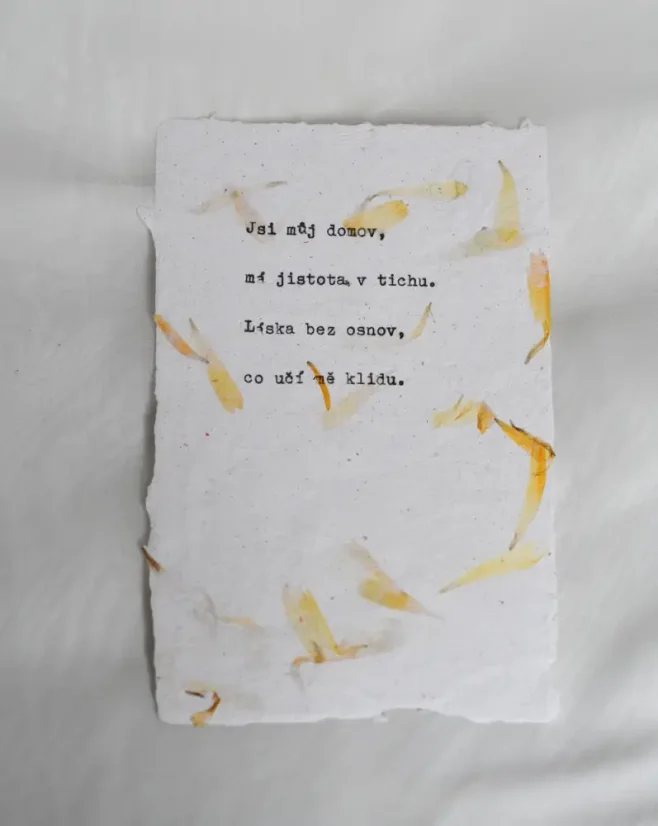 Jsi můj domov,
má jistota v tichu.
Láska bez osnov,
co učí mě klidu.